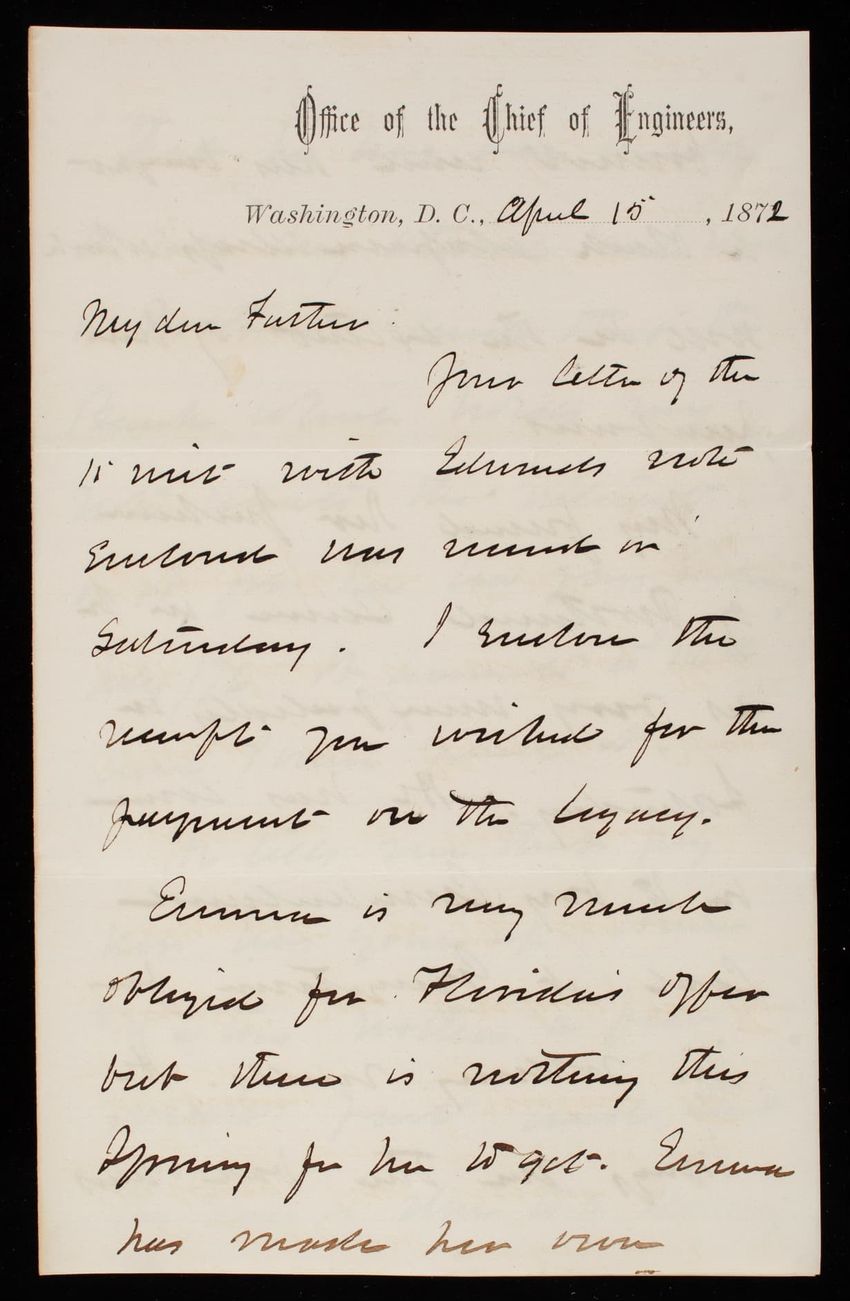 Office of the Chief of Engineers,
Washington, D. C., April 15, 1872
My dear Father
Your letter of the
15 inst with Edwards note
Enclosed was received on
Saturday. I Enclose the
receipt you wished for the
payment on the legacy.
Emma is very much
obliged for Florida's offer
but there is nothing this
Spring for her to get. Emma
has made her own